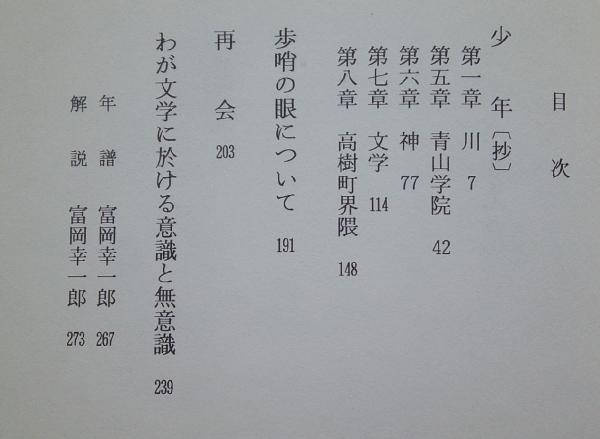 目次
少年〔抄〕
第一章 川 7
第五章 青山学院 42
第六章 神 77
第七章 文学 114
第八章 高樹町界隈 148
歩哨の眼について 191
再会 203
わが文学に於ける意識と無意識 239
年譜 富岡幸一郎 267
解説 富岡幸一郎 273